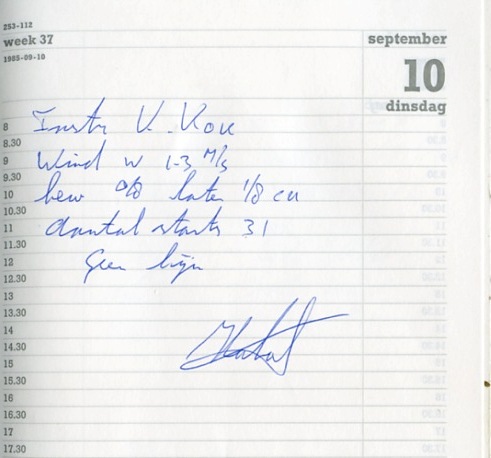 253-112
week 37
september
1985-09-10
10
dinsdag
8 Instr V. Kok
8.30
9 Wind w 1-3 M/s
9.30
10 bew 0/8 later 1/8 cu
10.30
11 aantal starts 31
11.30
12 Geen bijz
12.30
13
13.30
14
14.30
15
15.30
16
16.30
17
17.30